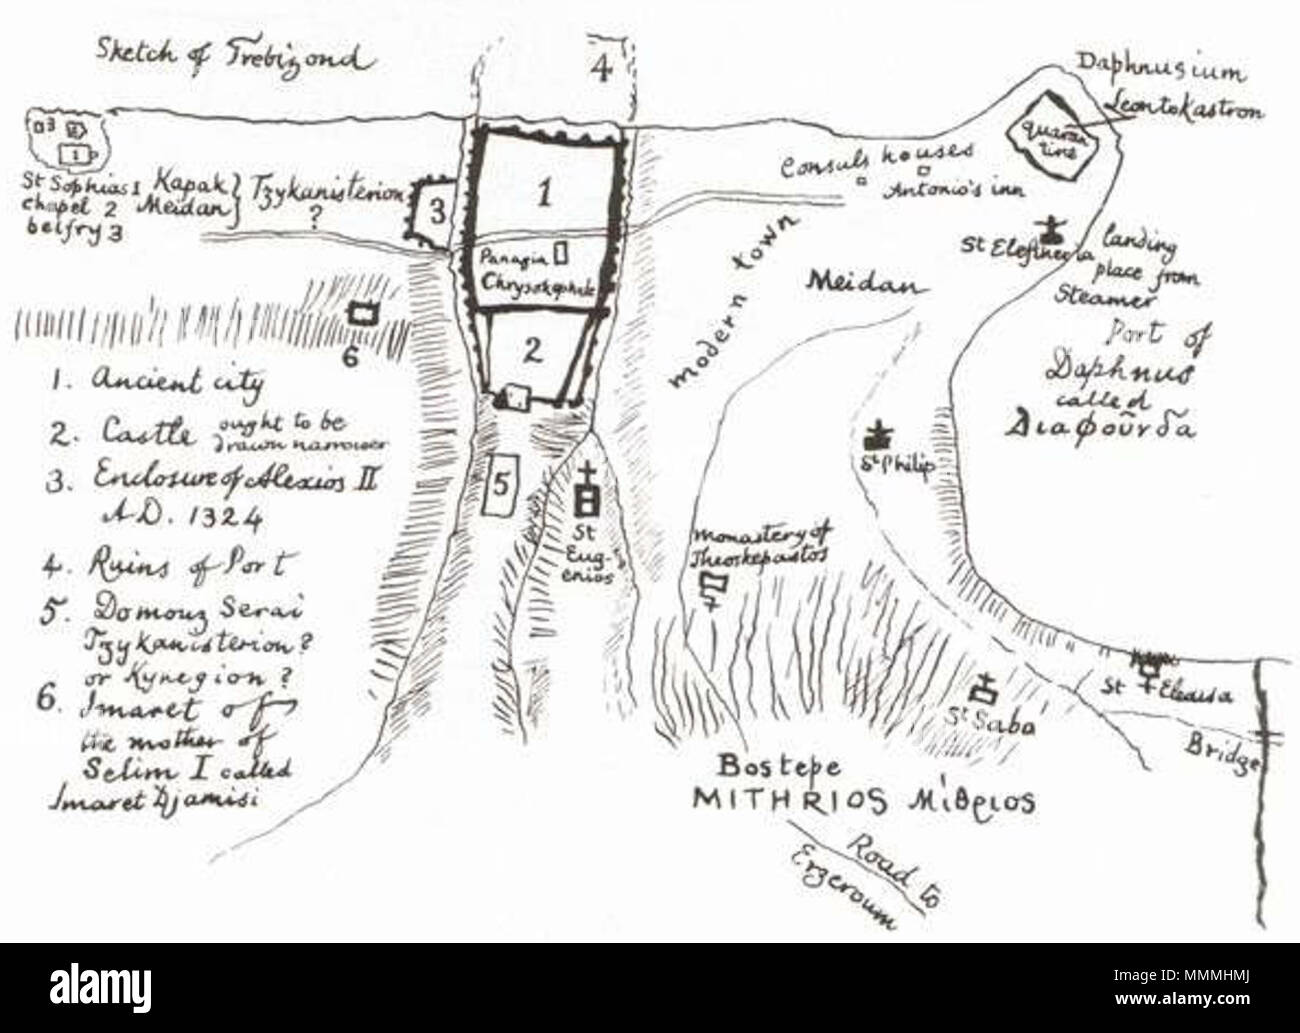 Sketch of Trebizond
4
Daphnusium
Leontokastron
quaran
tine
Consuls houses
Antonio's inn
3
2
1
St Sophias 1
chapel 2
belfry 3
Kapak
Meidan
Tzykanisterion
?
3
1
Panagia
Chrysokephale
2
modern town
Meidan
St Elefineria
landing
place from
Steamer
Port of
Daphnus
called
Διαφοῦνδα
6
1. Ancient city
2. Castle ought to be
drawn narrower
3. Enclosure of Alexios II
A.D. 1324
4. Ruins of Port
5. Domouz Serai
Tzykanisterion?
or Kynegion?
6. Imaret of
the mother of
Selim I called
Imaret Djamisi
5
St
Eug-
enios
St Philip
monastery of
Theoskepastos
St Saba
St Eleousa
Bridge
Bostepe
MITHRIOS Μίθριος
Road to
Erzeroum
alamy
Image ID: MMMHMJ
www.alamy.com